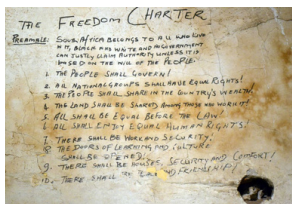 THE FREEDOM CHARTER!
PREAMBLE: SOUTH AFRICA BELONGS TO ALL WHO LIVE
IN IT, BLACK AND WHITE AND NO GOVERNMENT
CAN JUSTLY CLAIM AUTHORITY UNLESS IT IS
BASED ON THE WILL OF THE PEOPLE.
1. THE PEOPLE SHALL GOVERN!
2. ALL NATIONAL GROUPS SHALL HAVE EQUAL RIGHTS!
3. THE PEOPLE SHALL SHARE IN THE COUNTRY'S WEALTH!
4. THE LAND SHALL BE SHARED AMONG THOSE WHO WORK IT!
5. ALL SHALL BE EQUAL BEFORE THE LAW!
6. ALL SHALL ENJOY EQUAL HUMAN RIGHTS!
7. THERE SHALL BE WORK AND SECURITY!
8. THE DOORS OF LEARNING AND CULTURE
SHALL BE OPENED.
9. THERE SHALL BE HOUSES, SECURITY AND COMFORT!
10. THERE SHALL BE AND FRIENDSHIP!